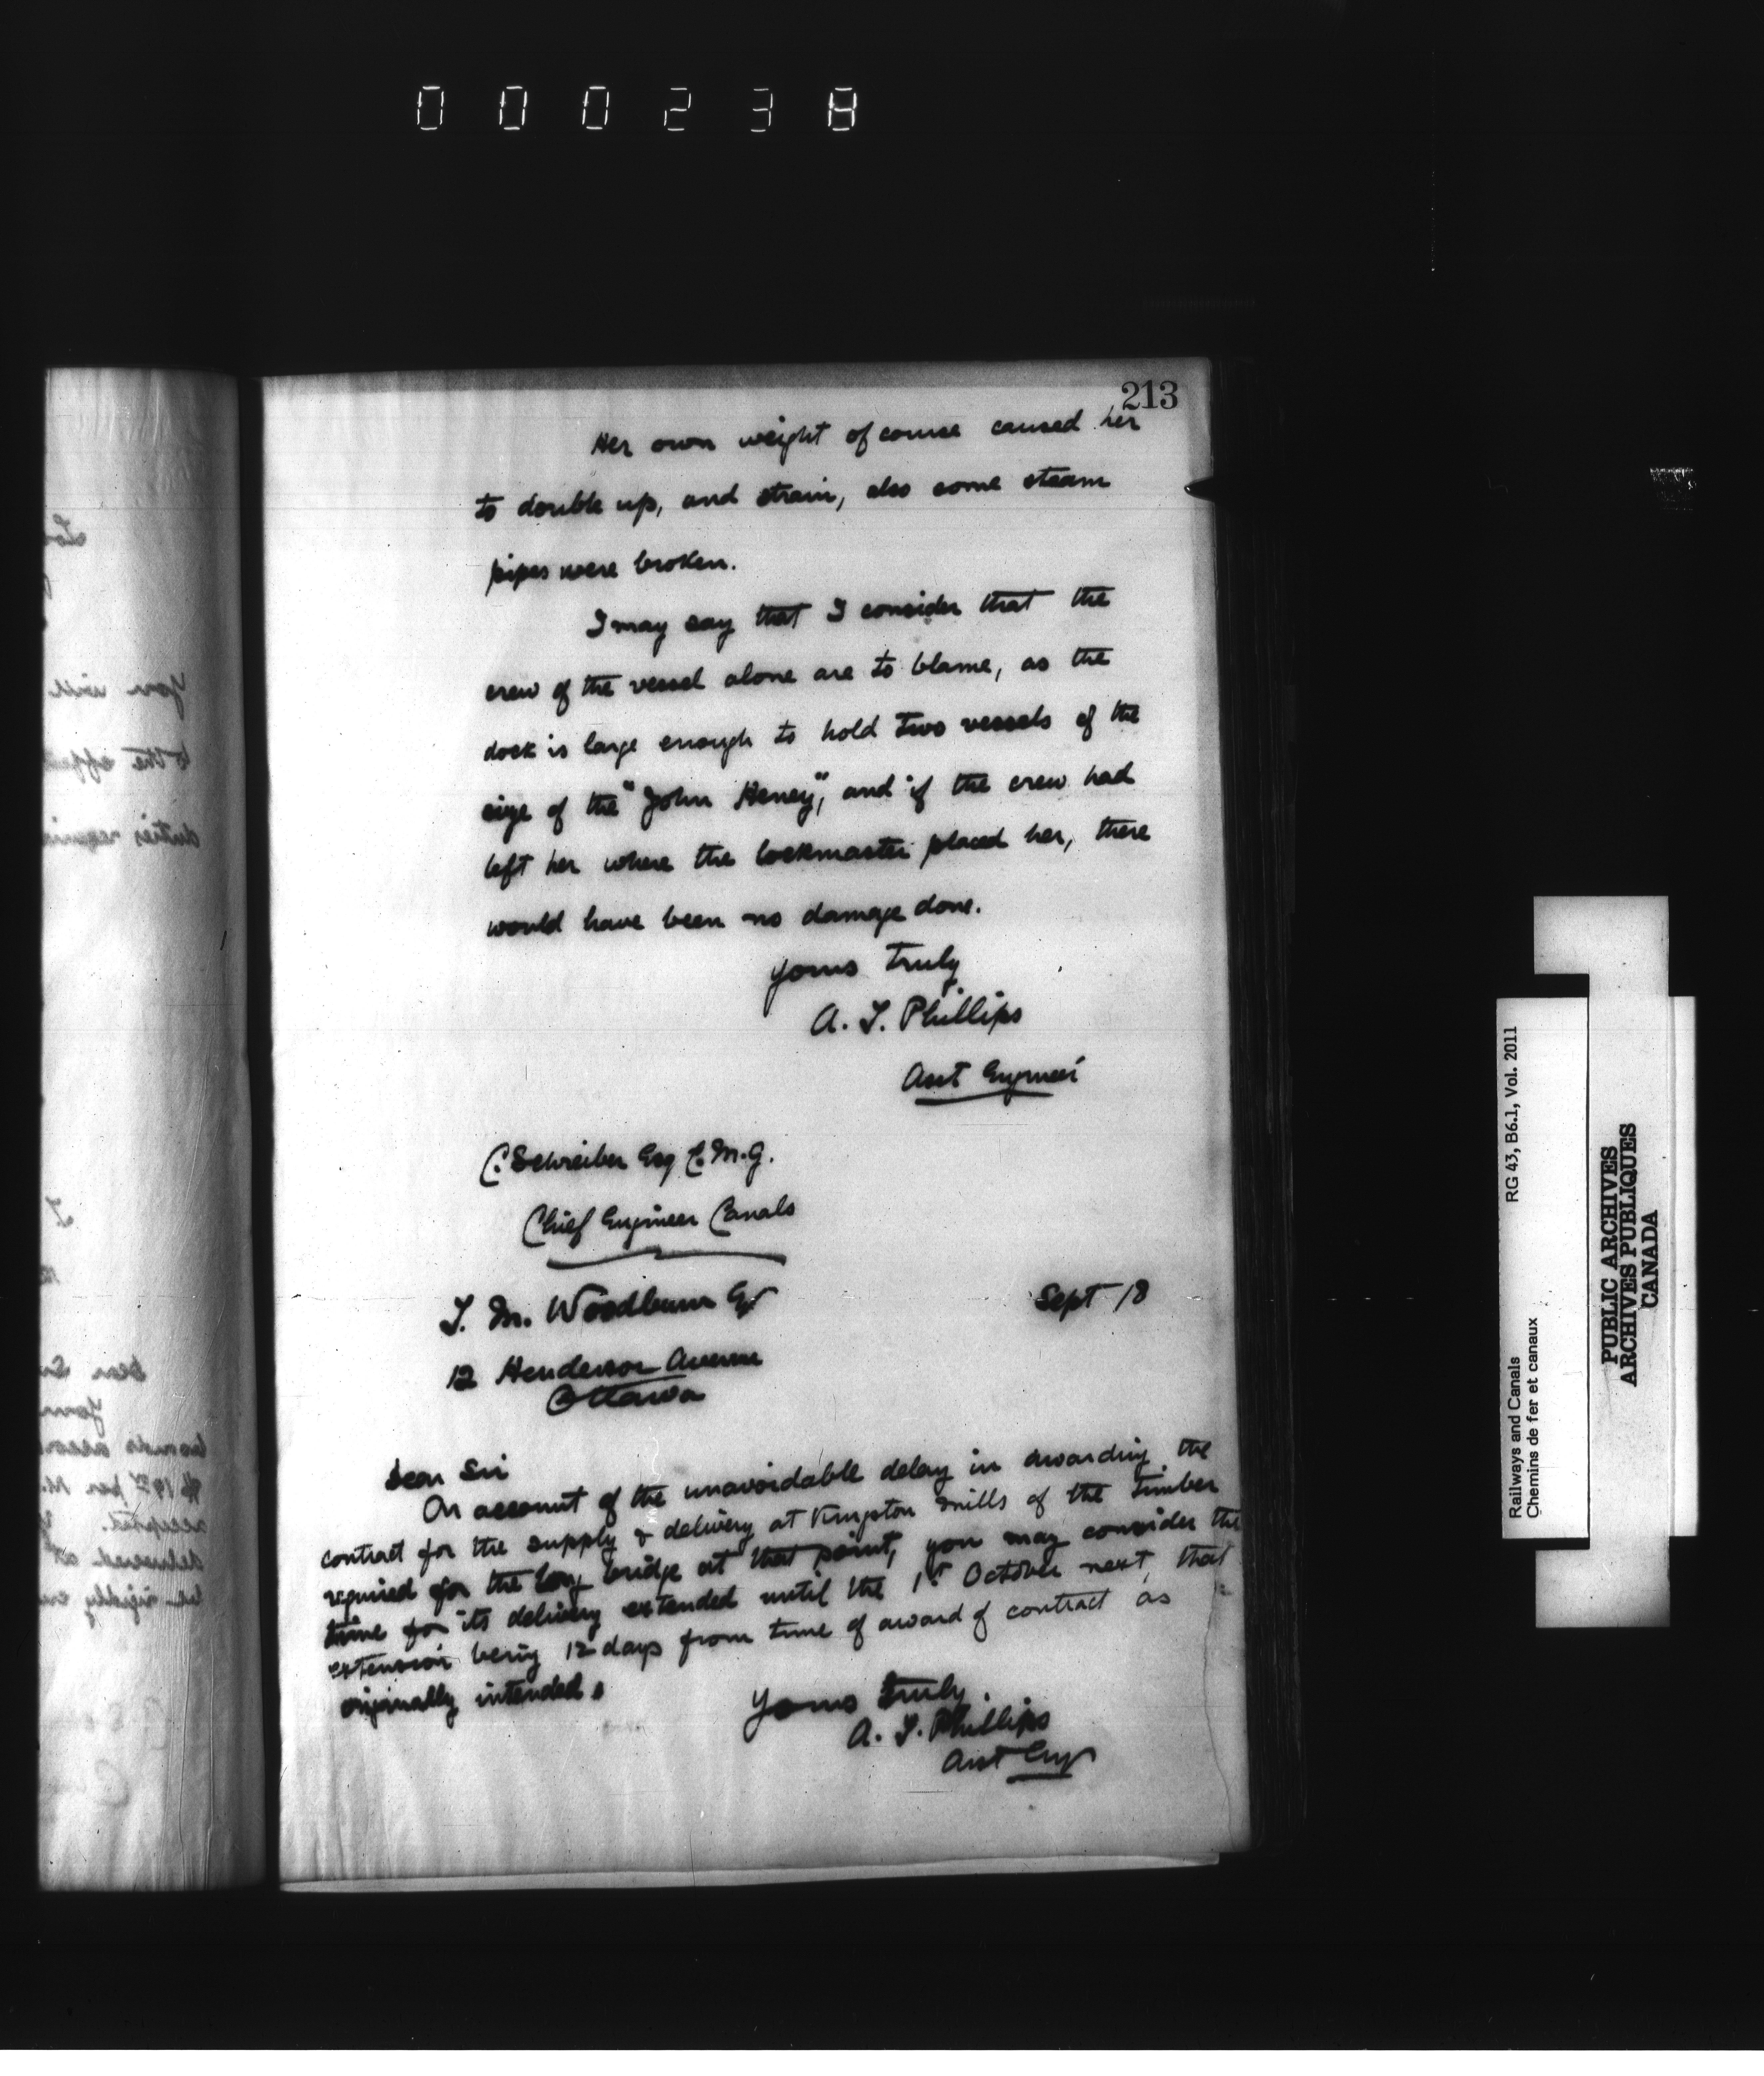 000238
213
Her own weight of course caused her
to double up, and strain, also some steam
pipes were broken.
I may say that I consider that the
crew of the vessel alone are to blame, as the
dock is large enough to hold two vessels of the
size of the "John Haney", and if the crew had
left her where the lockmaster placed her, there
would have been no damage done.
Yours truly
A. T. Phillips
Asst Engineer
C. Schreiber Esq C.M.G.
Chief Engineer Canals
T. M. Woodburn Esq
Sept 18
12 Henderson Avenue
Ottawa
Dear Sir
On account of the unavoidable delay in awarding the
contract for the supply & delivery at Kingston Mills of the timber
required for the long bridge at that point, you may consider the
time for its delivery extended until the 1st October next, that
extension being 12 days from time of award of contract as
originally intended.
Yours truly.
A. T. Phillips
Asst Engr
You will
to the effect
duties
Dear Sir
per M.
accepted.
delivered at
be rigidly
Railways and Canals RG 43, B6.1, Vol. 2011
Chemins de fer et canaux
PUBLIC ARCHIVES
ARCHIVES PUBLIQUES
CANADA